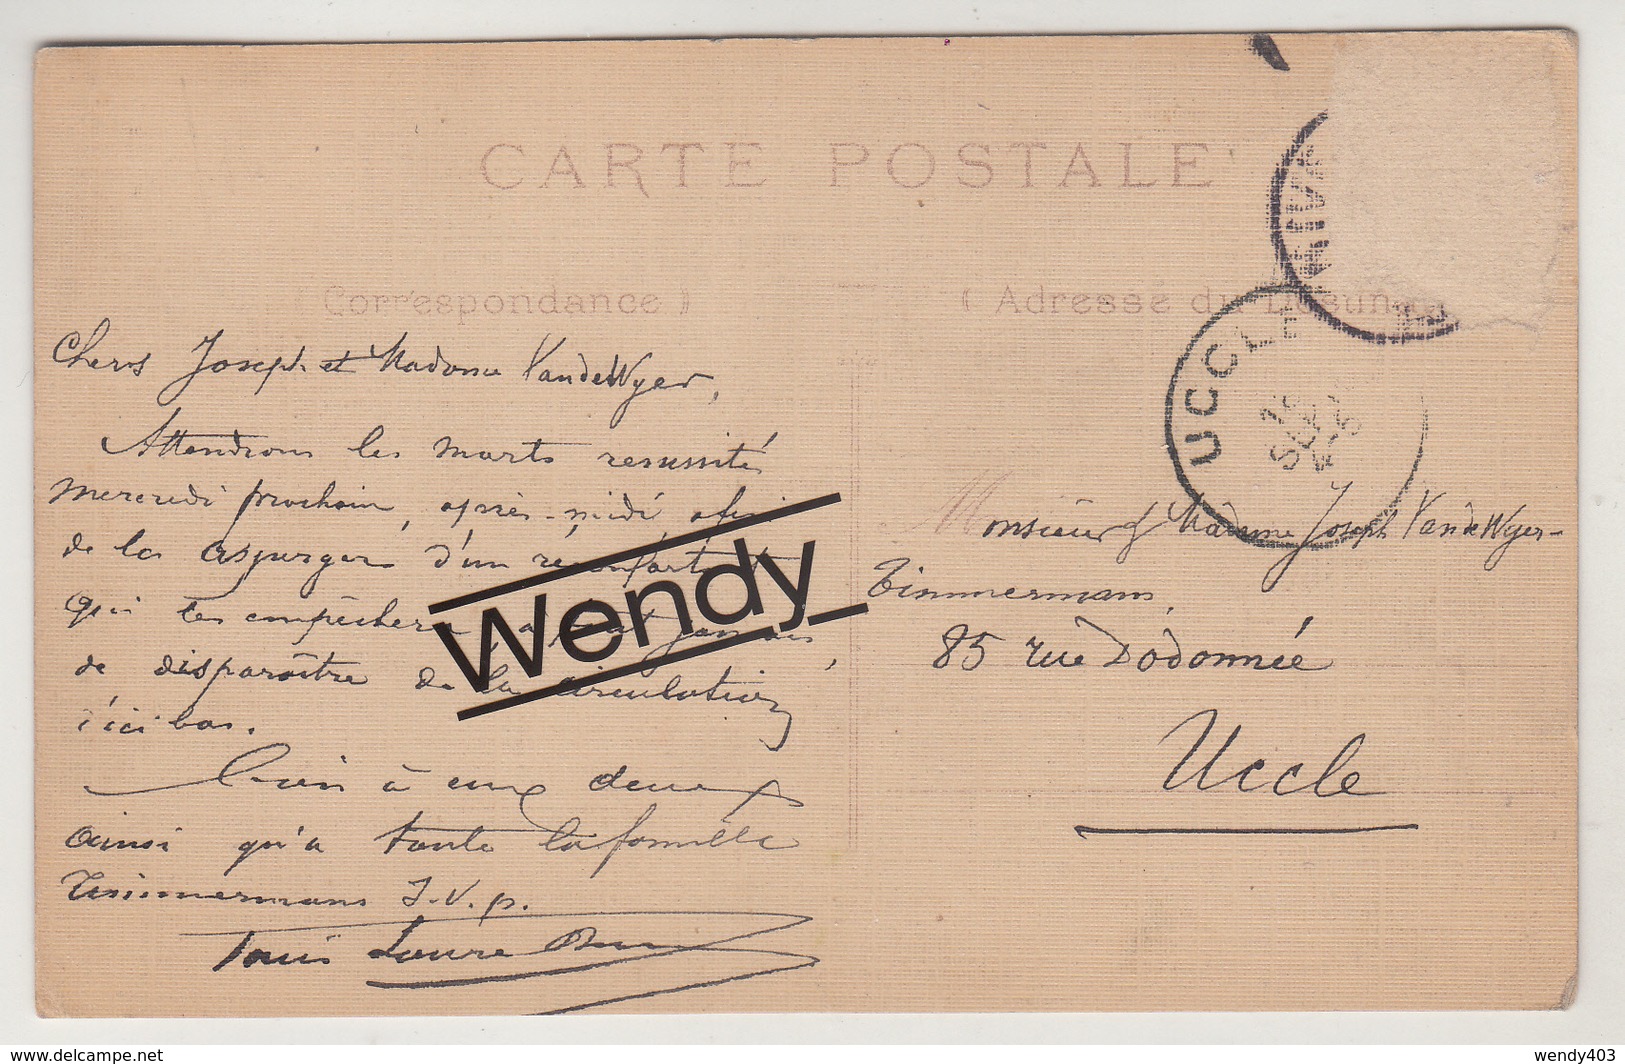 CARTE POSTALE
Correspondance
Adresse du
UCCLE
Chers Joseph et Madame VandeWyer,
Attendrons les morts ressussités
mercredi prochain, après-midi, afin
de les asperger d'un
qui les empêchera jamais
de disparaître de la circulation
d'ici bas.
bien à eux deux
ainsi qu'à toute la famille
Timmermans S.V.p.
Wendy
Monsieur & Madame Joseph VandeWyer-
Timmermans,
85 rue Dodonnée
Uccle
www.delcampe.net
wendy403